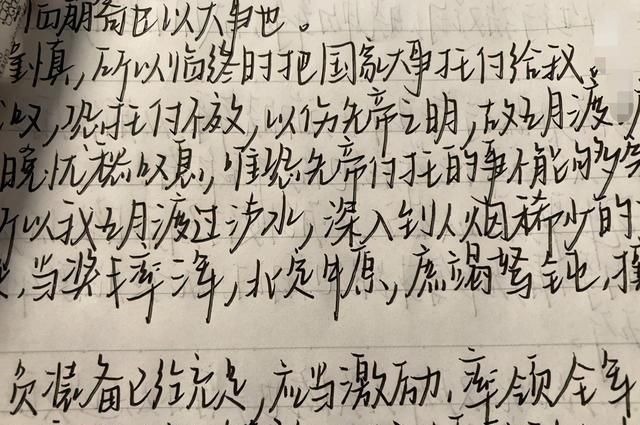 临崩寄臣以大事也。
谨慎，所以临终时把国家大事托付给我。
叹，恐托付不效，以伤先帝之明，故五月渡
晚忧愁叹息，唯恐先帝付托的事不能够
所以我五月渡过泸水，深入到人烟稀少的
当奖率三军，北定中原，庶竭驽钝，攘
员装备已经充足，应当激励、率领全军